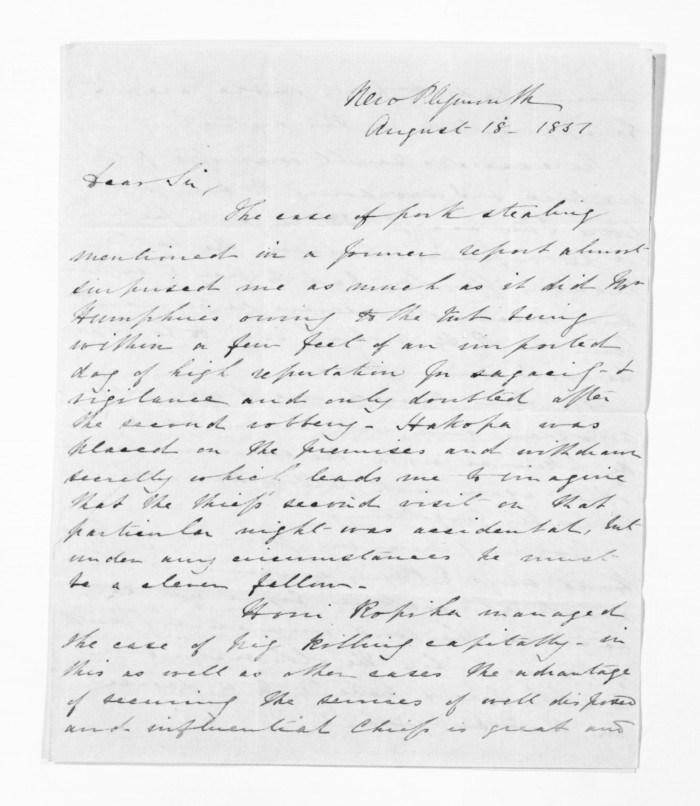 New Plymouth
August 18 - 1851
Dear Sir,
The case of pork stealing
mentioned in a former report almost
surprised me as much as it did Mr
Humphries owing to the hut being
within a few feet of an imported
dog of high reputation for sagacity &
vigilance and only doubted after
the second robbery - Hakopa was
placed on the premises and withdrawn
secretly which leads me to imagine
that the thief's second visit on that
particular night was accidental, but
under any circumstances he must
be a clever fellow.
Honi Ropiha managed
the case of pig killing capitally - in
this as well as other cases the advantage
of securing the services of well disposed
and influential Chiefs is great and